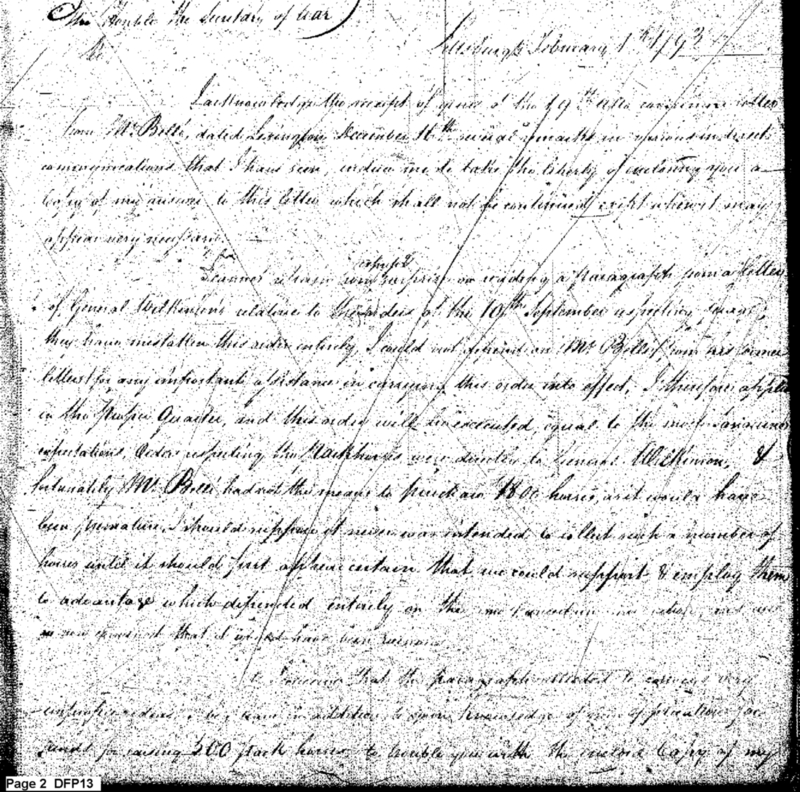 The Honble the Secretary of War
Pittsburgh February 1st 1793
Sir
I acknowledge the receipt of yours of the 19th Ulto. a letter
from Mr Belli, dated Lexington December 16th several remarks in various indirect
communications that I have seen, induce me to take the liberty of enclosing you a
Copy of my answer to this letter which shall not be continued except when it may
appear very necessary
I cannot surprize on reading a Paragraph from a letter
of General Wilkinsons relative to the orders of the 10th September respecting
they have mistaken this order entirely, I could not depend on Mr Belli from his former
letters for any important assistance in carrying this order into effect, I therefore applied
in the proper Quarter, and this order will be executed equal to the most sanguine
expectations. Orders respecting the Packhorses were directly to General Wilkinson, &
fortunately Mr Belli had not the means to purchase 1800 horses, as it would have
been premature, I should suppose it never was intended to collect such a number of
horses until it should first appear certain that we could support & employ them
to advantage which depended entirely on the and
that it would have been
I conceive that the paragraph alluded to conveys very
ideas I beg leave in addition to your Knowledge of your application for
funds for raising 300 pack horses, to trouble you with the enclosed Copy of my
Page 2 DFP13